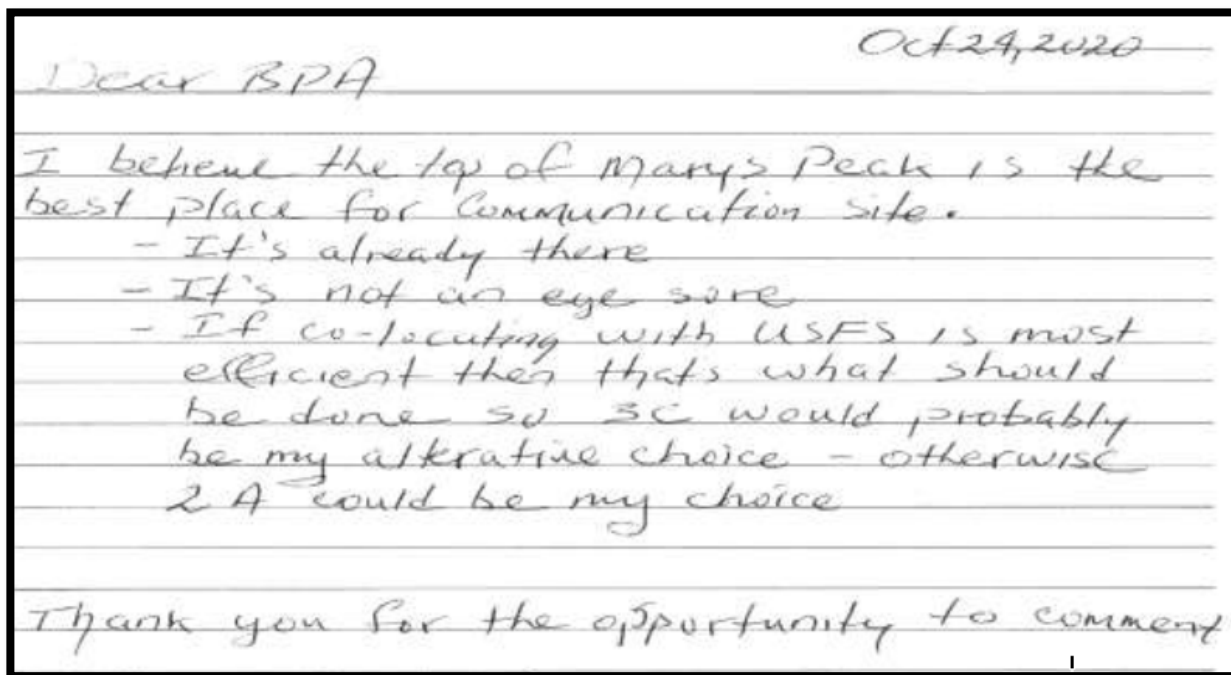 Oct 24, 2020
Dear BPA
I believe the top of Marys Peak is the
best place for Communication site.
- It's already there
- It's not an eye sore
- If co-locating with USFS is most
efficient then thats what should
be done so 3C would probably
be my alterative choice - otherwise
2A could be my choice
Thank you for the opportunity to comment